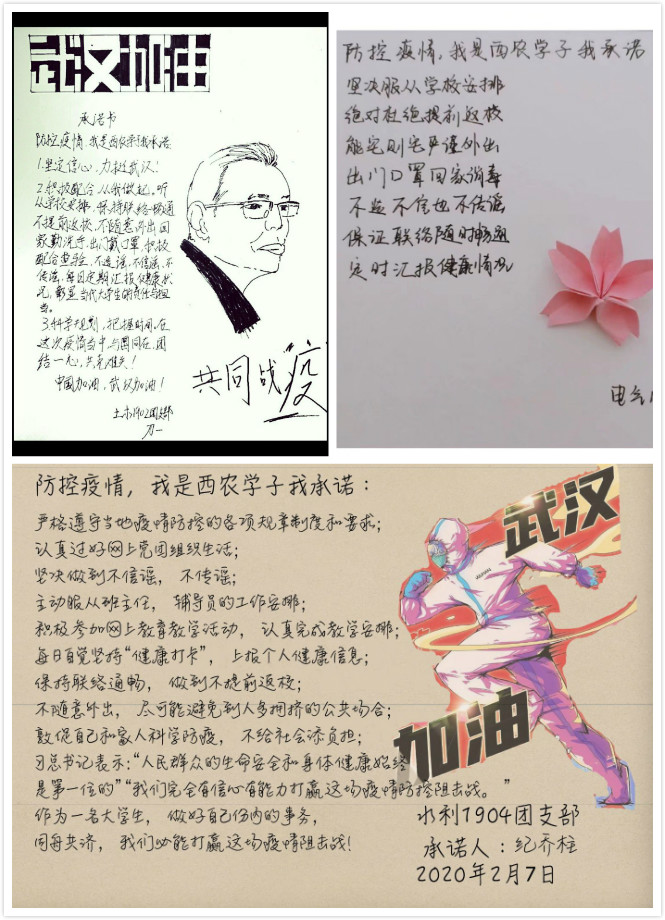 武汉加油
承诺书
防控疫情,我是西农学子我承诺
1.坚定信心,力挺武汉!
2.积极配合,从我做起,听
从学校安排,保持联络畅通
不提前返校,不随意外出,回
家勤洗手,出门戴口罩,积极
配合查验,不造谣,不信谣,不
传谣,每日定期汇报健康状
况,彰显当代大学生的责任与担
当。
3.科学规划,把握时间,在
这次疫情当中,与国同在,团
结一心,共克难关!
中国加油,武汉加油!
土木1902团支部
共同战“疫”
防控疫情,我是西农学子我承诺
坚决服从学校安排
绝对杜绝提前返校
能宅则宅严谨外出
出门口罩回家消毒
不造不信也不传谣
保证联络随时畅通
定时汇报健康情况
电气
防控疫情,我是西农学子我承诺:
严格遵守当地疫情防控的各项规章制度和要求;
认真过好网上党团组织生活;
坚决做到不信谣,不传谣;
主动服从班主任,辅导员的工作安排;
积极参加网上教育教学活动,认真完成教学安排;
每日自觉坚持“健康打卡”,上报个人健康信息;
保持联络通畅,做到不提前返校;
不随意外出,尽可能避免到人多拥挤的公共场合;
敦促自己和家人科学防疫,不给社会添负担;
习总书记表示:“人民群众的生命安全和身体健康始终
是第一位的”“我们完全有信心有能力打赢这场疫情防控阻击战。”
作为一名大学生,做好自己份内的事务,
同舟共济,我们必能打赢这场疫情阻击战!
武汉
加油
水利1904团支部
承诺人:纪乔柱
2020年2月7日